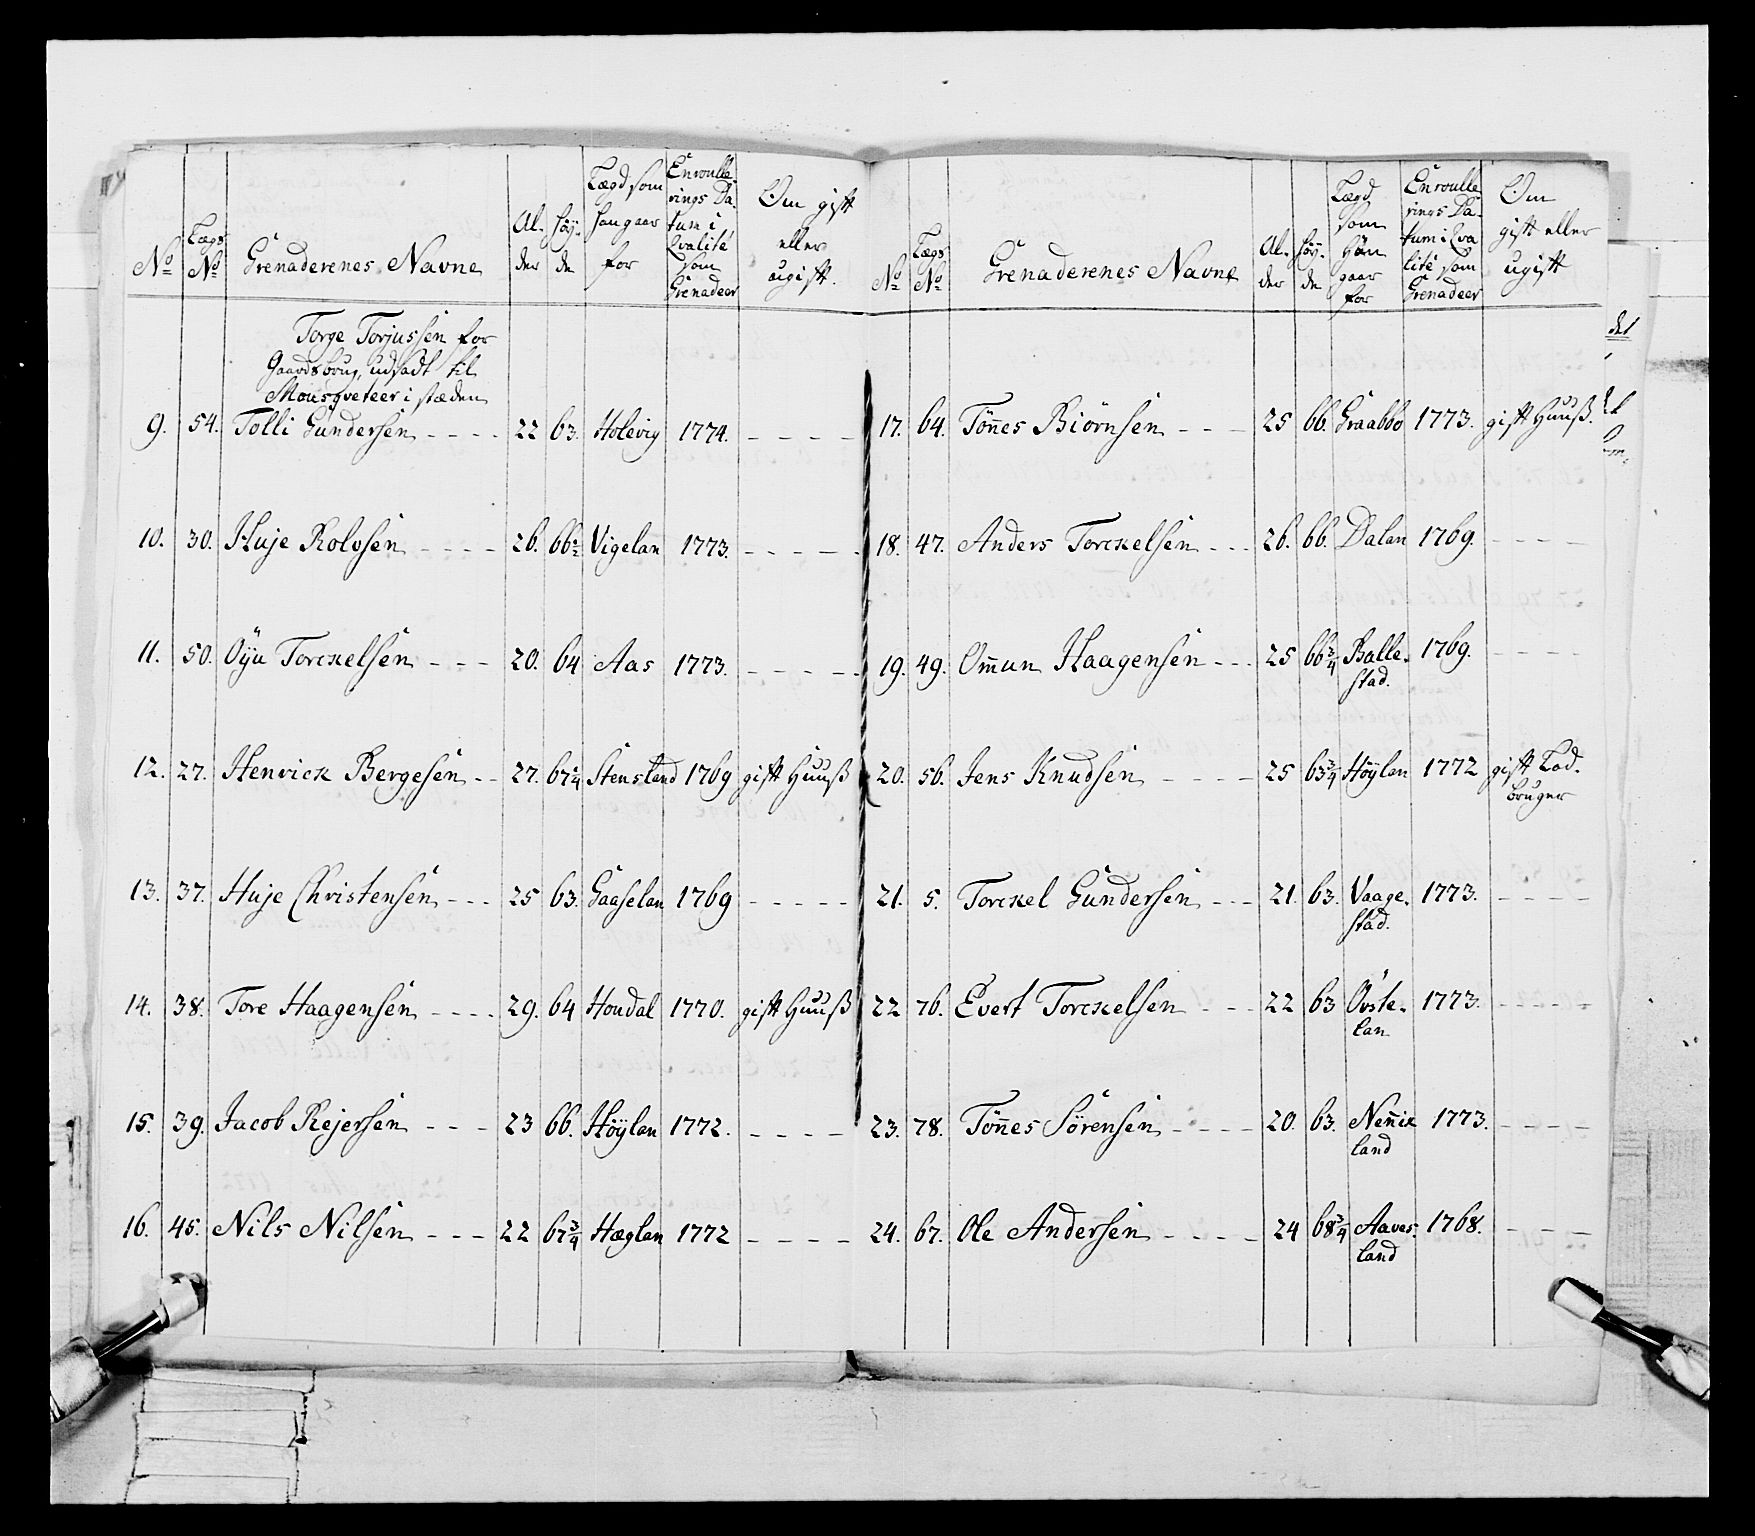 No | Lægs No | Grenaderenes Navne | Al-der | Høy-de | Lægd som han gaar for | Enroulle-rings Da-tum i Qvalité som Grenadeer | Om gift eller ugift.
Torge Torjussen for
Gaardsbrug, udsadt til
Mousqveteer i stæden
9. 54. Tolli Gundersen - - - - 22 63. Holevig 1774. - - - -
10. 30. Huje Rolvsen - - - - 26. 66½ Vigelan 1773. - - - - -
11. 50. Öyu Torckelsen - - - 20. 64 Aas 1773. - - - - -
12. 27. Henrick Bergesen - - 27. 67¼ Stensland 1769 gift Huuß
13. 37. Huje Christensen - - - 25 63. Gaaselan 1769 - - - - -
14. 38. Tore Haagensen - - - - 29. 64 Houdal 1770. gift Huuß
15. 39. Jacob Rejersen - - - 23 66. Höylan 1772. - - - -
16. 45. Nils Nilsen - - - 22 67¾ Hæglan 1772 - - - -
No | Lægs No | Grenaderenes Navne | Al-der | Høy-de | Lægd som han gaar for | Enroulle-rings Da-tum i Qva-lité som Grenadeer | Om gift eller ugift
17. 64. Tönnes Biörnsen - - - 25 66. Graabbo 1773. gift Huuß.
18. 47. Anders Torckelsen - - - 26. 66. Dalan 1769. - - - -
19. 49. Ommun Haagensen - - - 25 66¾ Balle-stad. 1769. - - - -
20. 56. Jens Knudsen - - - - 25 63¾ Höylan 1772 gift Lod-bruger
21. 5. Torckel Gundersen - - - 21. 63. Vaage-stad. 1773. - - - -
22 76. Evert Torckelsen - - - 22 63 Övste-lan 1773. - - - -
23. 78. Tönnes Sörensen - - - - 20. 63. Nennie land 1773. - - - -
24. 67. Ole Andersen - - - - 24 68¾ Aaves-land 1768. - - -
det